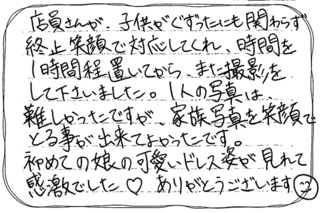 店員さんが、子供がぐずったにも関わらず
終止笑顔で対応してくれ、時間を
1時間程置いてから、また撮影を
して下さいました。1人の写真は、
難しかったですが、家族写真を笑顔で
とる事が出来てよかったです。
初めての娘の可愛いドレス姿が見れて
感激でした♡ ありがとうございます